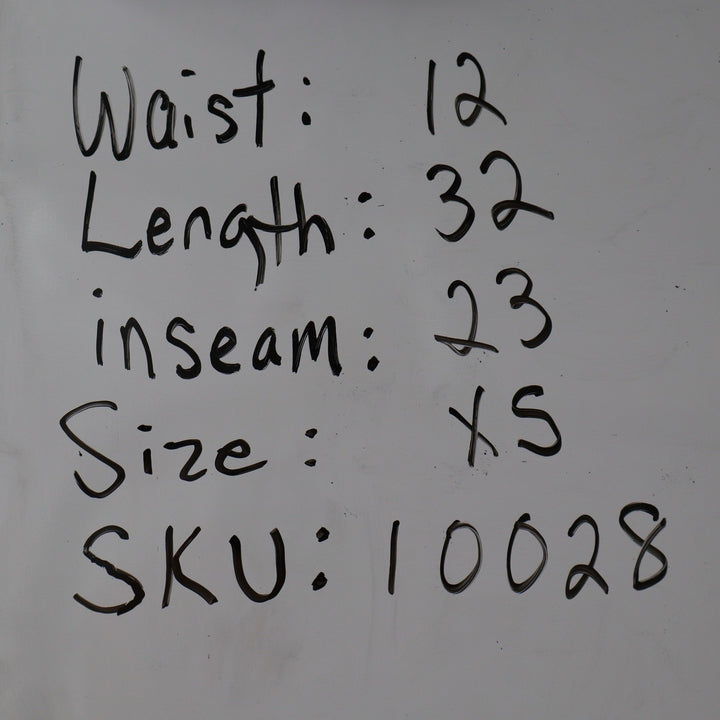 Waist: 12
Length: 32
inseam: 23
Size: XS
SKU: 10028